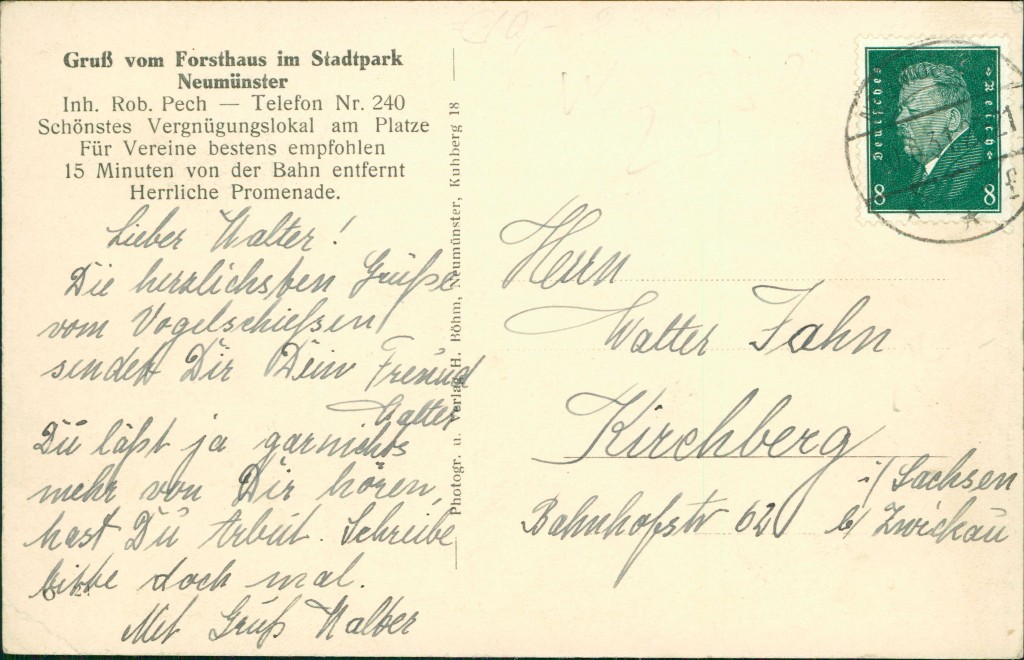 Gruß vom Forsthaus im Stadtpark
Neumünster
Inh. Rob. Pech — Telefon Nr. 240
Schönstes Vergnügungslokal am Platze
Für Vereine bestens empfohlen
15 Minuten von der Bahn entfernt
Herrliche Promenade.
Lieber Walter!
Die herzlichsten Grüße
vom Vogelschießen
sendet Dir Dein Freund
Walter
Du läßt ja garnichts
mehr von Dir hören,
hast Du Arbeit. Schreibe
bitte doch mal.
Mit Gruß Walter
Photogr. u. Verlag H. Böhm, Neumünster, Kuhberg 18
Deutsches Reich
8 8
Herrn
Walter Jahn
Kirchberg
i/Sachsen
Bahnhofstr 62 b/ Zwickau